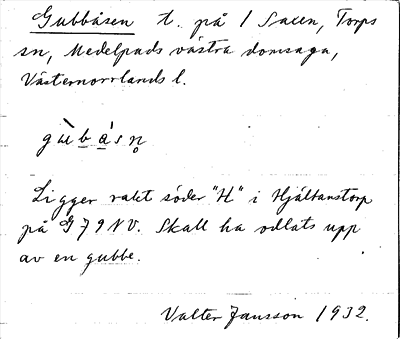 Gubbåsen t. på 1 Saxen, Torps
sn, Medelpads västra domsaga,
Västernorrlands l.
gùbásn̥
Ligger rakt söder "H" i Hjältanstorp
på G79NV. Skall ha odlats upp
av en gubbe.
Valter Jansson 1932.